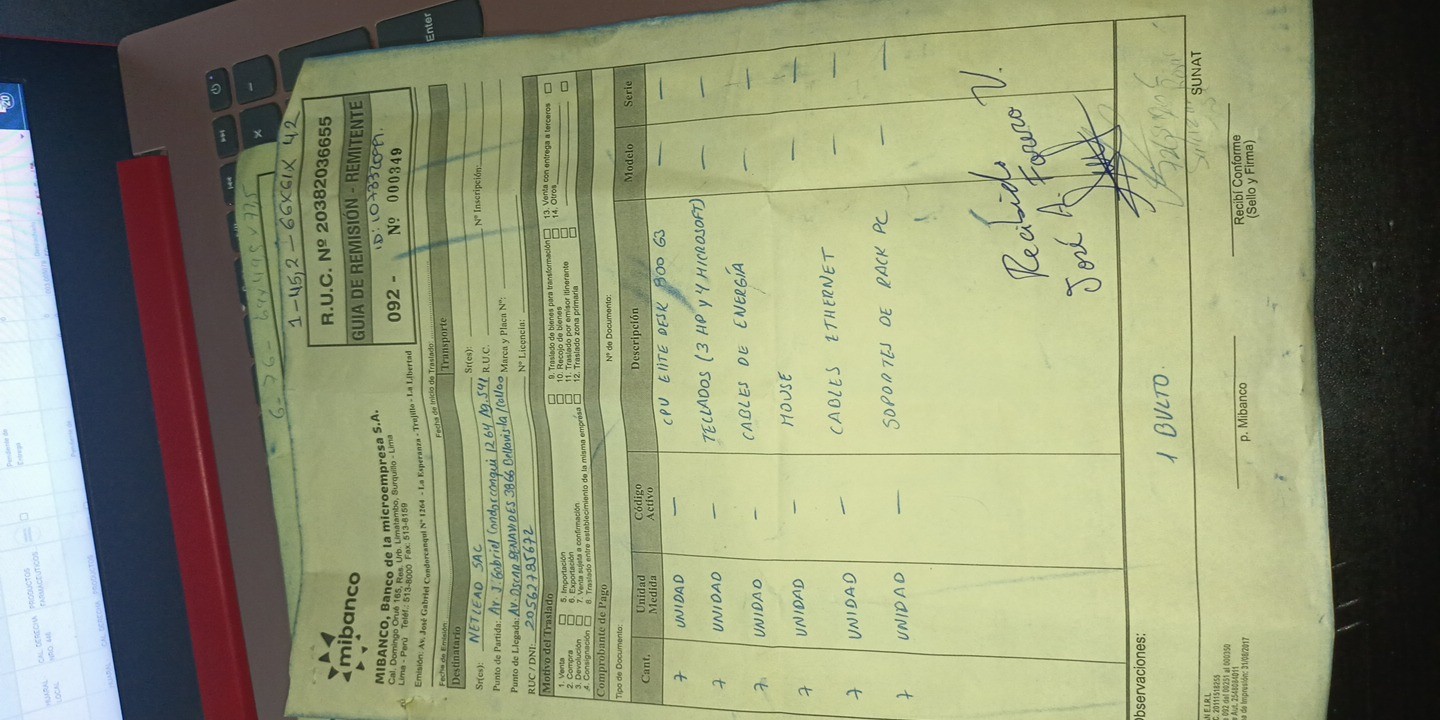 1-45,2-66x61x42
mibanco
MIBANCO, Banco de la microempresa S.A.
Cal. Domingo Orué 165, Res. Urb. Limatambo, Surquillo - Lima
Lima - Perú Teléf.: 513-8000 Fax: 513-8159
Emisión: Av. José Gabriel Condorcanqui N° 1264 - La Esperanza - Trujillo - La Libertad
R.U.C. Nº 20382036655
GUIA DE REMISIÓN - REMITENTE
092 - Nº 000349
Fecha de Emisión:
Fecha de Inicio de Traslado:
Destinatario
Transporte
Sr(es): NETLEAD SAC
Sr(es):
Punto de Partida: Av. J. Gabriel Condorcanqui 1264 Ag. 541
R.U.C.
Nº Inscripción:
Punto de Llegada: Av. OSCAR BENAVIDES 3866 Bellavista/Callao
Marca y Placa Nº:
RUC / DNI: 20562795672
Nº Licencia:
Motivo del Traslado
1. Venta
2. Compra
3. Devolución
4. Consignación
5. Importación
6. Exportación
7. Venta sujeta a confirmación
8. Traslado entre establecimiento de la misma empresa
9. Traslado de bienes para transformación
10. Recojo de bienes
11. Traslado por emisor itinerante
12. Traslado zona primaria
13. Venta con entrega a terceros
14. Otros
Comprobante de Pago
Tipo de Documento:
Nº de Documento:
Cant. Unidad Medida Código Activo Descripción Modelo Serie
7 UNIDAD — CPU ELITE DESK 800 G3 — —
7 UNIDAD — TECLADOS (3 HP y 4 MICROSOFT) — —
7 UNIDAD — CABLES DE ENERGÍA — —
7 UNIDAD — MOUSE — —
7 UNIDAD — CABLES ETHERNET — —
7 UNIDAD — SOPORTES DE RACK PC — —
Recibido
José A. Forero V.
Observaciones:
1 BULTO.
p. Mibanco
Recibí Conforme
(Sello y Firma)
SUNAT